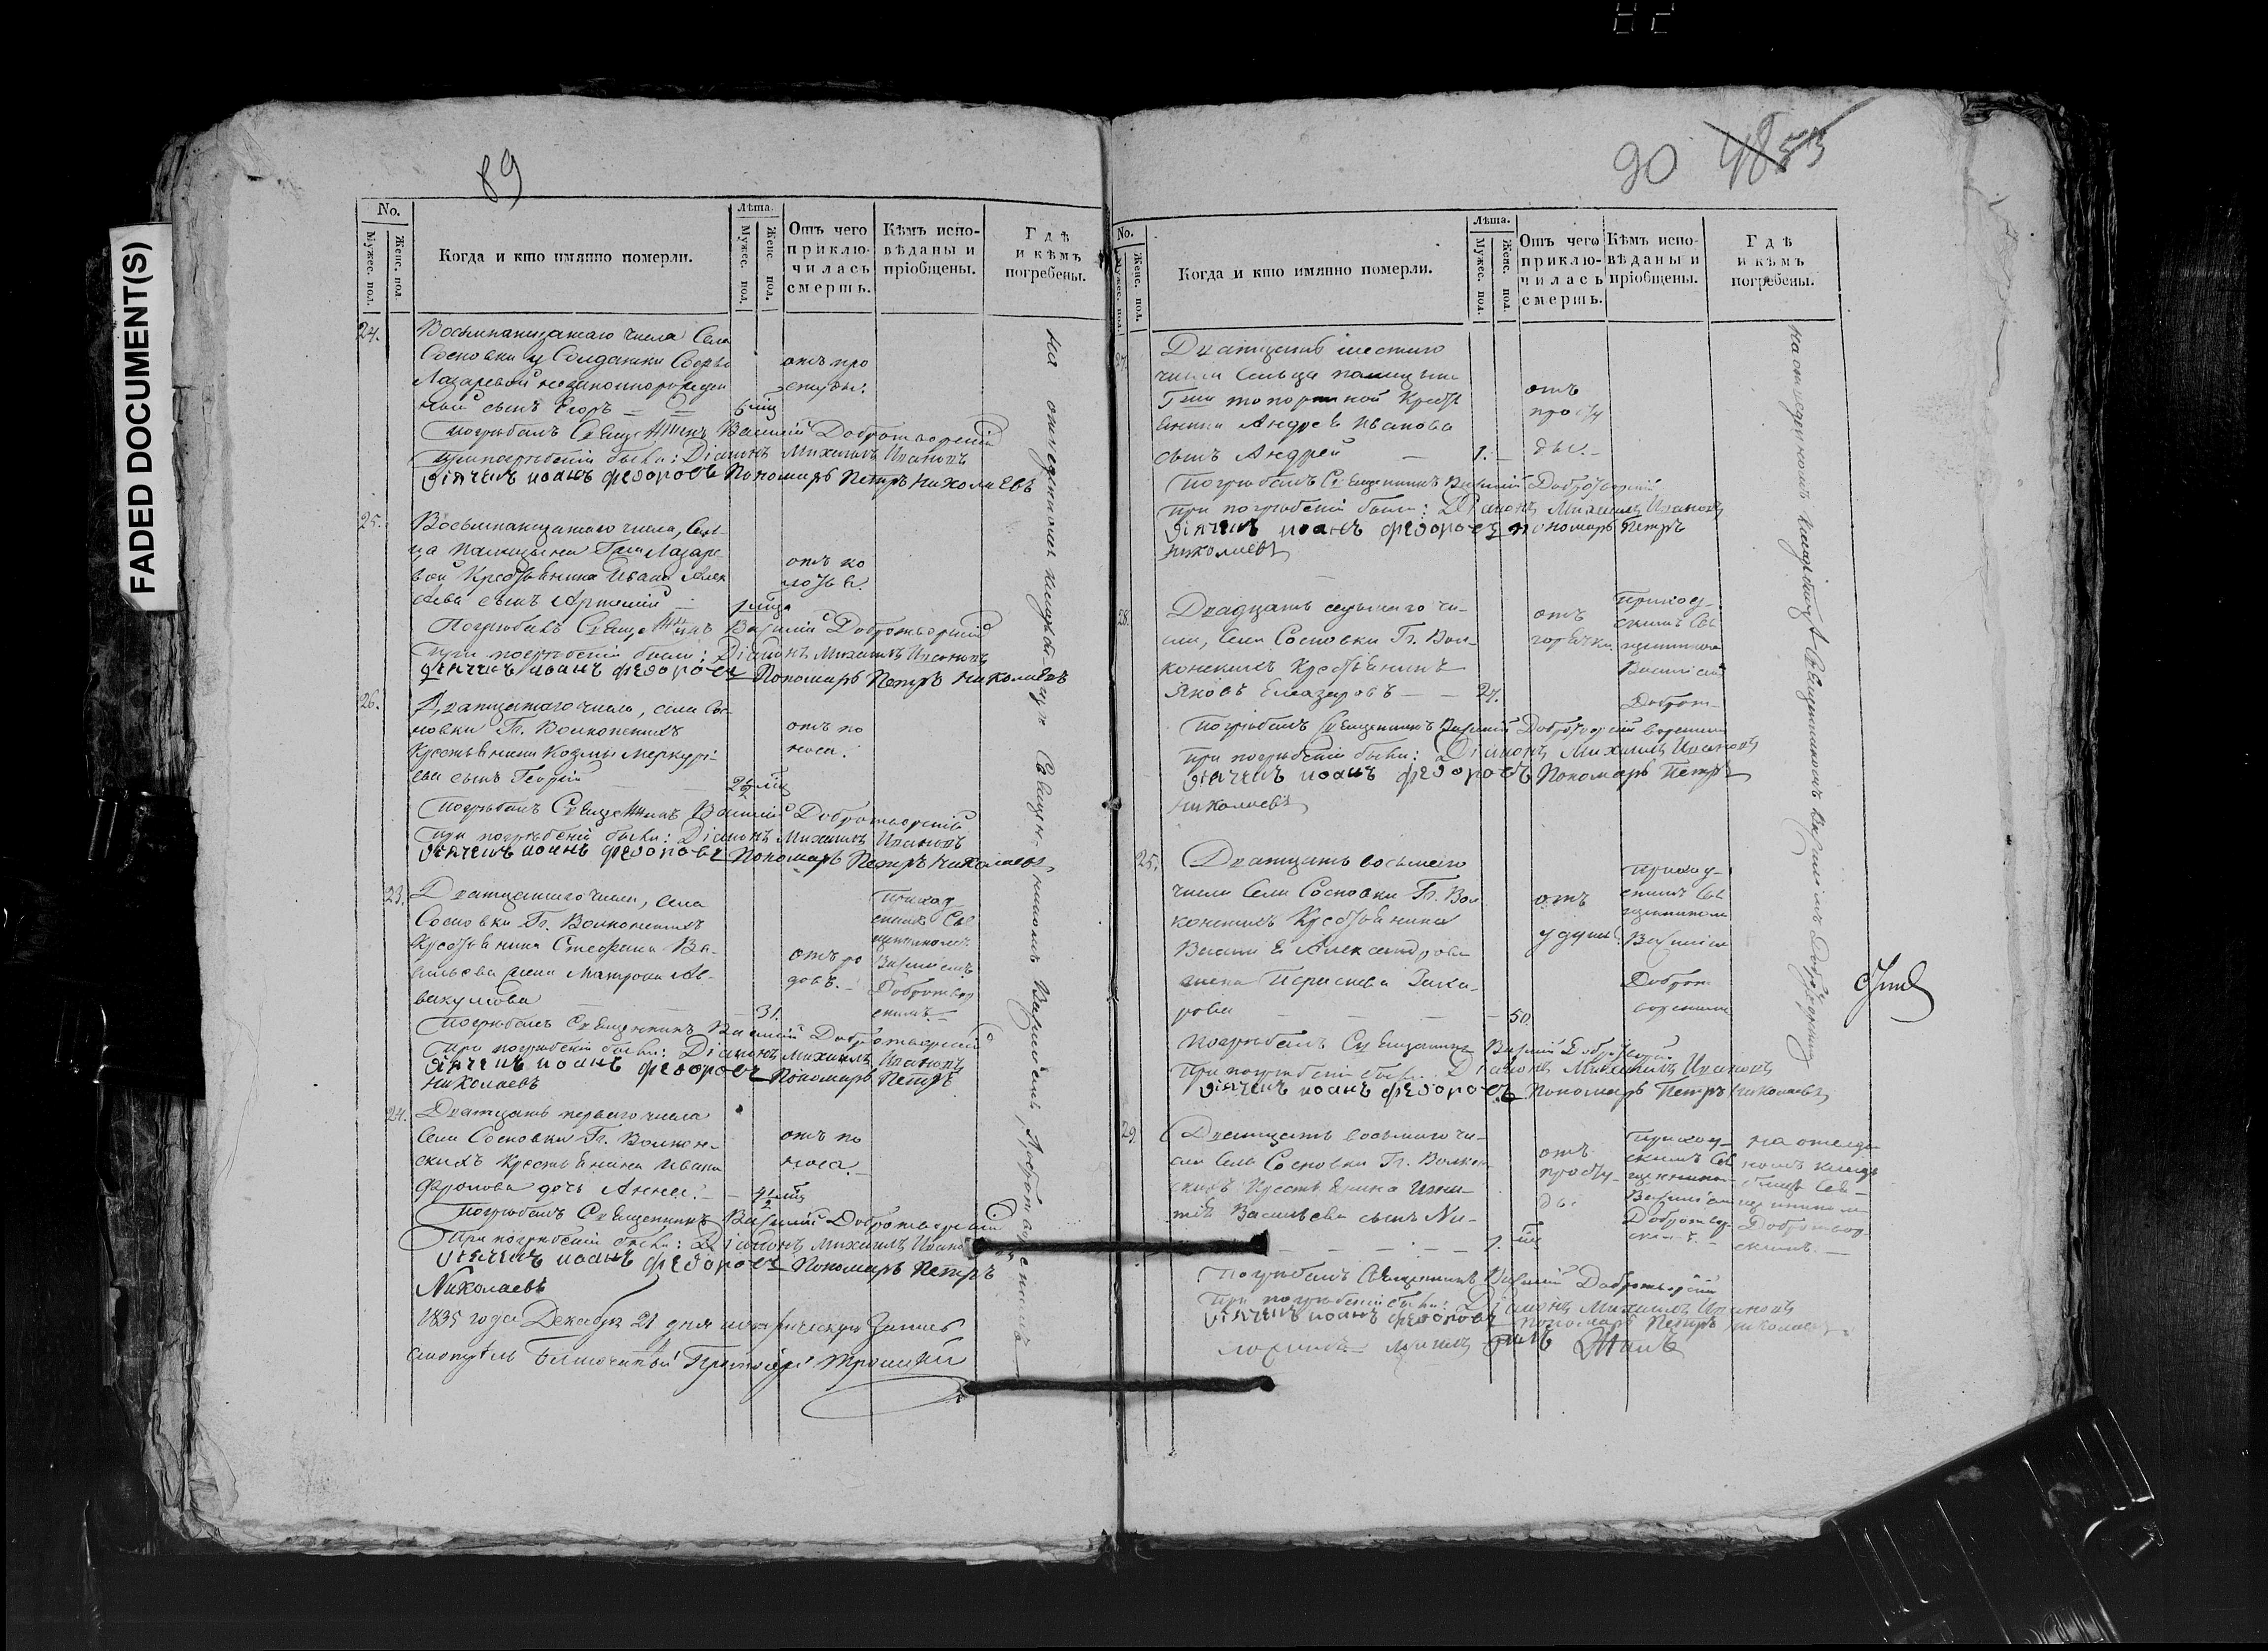 FADED DOCUMENT(S)
89
No.
Мужес. пол.
Женс. пол.
Когда и кто имянно померли.
Лѣта.
Мужес. пол.
Женс. пол.
Отъ чего приключилась смерть.
Кѣмъ исповѣданы и пріобщены.
Гдѣ и кѣмъ погребены.
24.
Восьмнацатаго числа Села
Сосновки у Солдатки
Лазаревой незаконнорожден
ный сынъ Егоръ
6 мц
отъ про
Погребалъ Священникъ Василій Добротворскій
При погребеніи были: Діаконъ Михаилъ Ивановъ
Дьячекъ Иоанъ Федоровъ Пономарь Петръ Николаевъ
25.
Восьмнацатаго числа, Сель
ца Паницына Гжи Лазаре
вой Крестьянина Ивана Алек
сѣева сынъ Артемій
1 мца
отъ ко
лотья
Погребалъ Священникъ Василій Добротворскій
При погребеніи были: Діаконъ Михаилъ Ивановъ
Дьячекъ Иоанъ Федоровъ Пономарь Петръ Николаевъ
26.
Дватцатаго числа, села Сос
новки Гг. Волконскихъ
Крестьянина Козмы Меркурі
ева сынъ Георгій
2½ мц
отъ по
носа.
Погребалъ Священникъ Василій Добротворскій
При погребеніи были: Діаконъ Михаилъ Ивановъ
Дьячекъ Иоанъ Федоровъ Пономарь Петръ Николаевъ
23.
Дватцатаго числа, села
Сосновки Гг. Волконскихъ
Крестьянина Стефана Ва-
сильева жена Матрона Ав-
вакумова
31.
отъ ро
довъ.
Приход
скимъ Свя
щенникомъ
Василіемъ
Добротвор
скимъ.
Погребалъ Священникъ Василій Добротворскій
При погребеніи были: Діаконъ Михаилъ Ивановъ
Дьячекъ Иоанъ Федоровъ Пономарь Петръ
Николаевъ
24.
Дватцать перваго числа
Села Сосновки Гг. Волкон-
скихъ Крестьянина Ивана
Фролова дочь Анна.
отъ по
носа.
Погребалъ Священникъ Василій Добротворскій
При погребеніи были: Діаконъ Михаилъ Ивановъ
Дьячекъ Иоанъ Федоровъ Пономарь Петръ
Николаевъ
1835 года Декабря 21 дня метрическую Запись
смотрѣлъ Благочинный Протоіерей Троицкій
на отведенномъ кладбищѣ Священникомъ Василіемъ Добротворскимъ
90 4853
No.
Мужес. пол.
Женс. пол.
Когда и кто имянно померли.
Лѣта.
Мужес. пол.
Женс. пол.
Отъ чего приключилась смерть.
Кѣмъ исповѣданы и пріобщены.
Гдѣ и кѣмъ погребены.
27.
Дватцать шестаго
числа Сельца Паницына
Гжи Топорниной Крестья
янина Андрея Иванова
сынъ Андрей
1.
отъ
просту
ды.
Погребалъ Священникъ Василій Добротворскій
При погребеніи были: Діаконъ Михаилъ Ивановъ
Дьячекъ Иоанъ Федоровъ Пономарь Петръ
Николаевъ
28.
Двадцать седьмаго чи-
сла, Села Сосновки Гг. Вол-
конскихъ Крестьянинъ
Яковъ Елеазаровъ
27.
отъ
горячки
Приход-
скимъ Свя
щенником
Василіем
Добротворскимъ
Погребалъ Священникъ Василій Добротворскій
При погребеніи были: Діаконъ Михаилъ Ивановъ
Дьячекъ Иоанъ Федоровъ Пономарь Петръ
Николаевъ
25.
Дватцать восьмаго
числа Села Сосновки Гг. Вол
конскихъ Крестьянина
Василія Александрова
жена Параскева Заха-
рова
50.
отъ
удушья
Приход-
скимъ Свя
щенником
Василіем
Добротворскимъ
Погребалъ Священникъ Василій Добротворскій
При погребеніи были: Діаконъ Михаилъ Ивановъ
Дьячекъ Иоанъ Федоровъ Пономарь Петръ Николаевъ
29.
Дватцать восьмаго чи-
сла Села Сосновки Гг. Волкон
скихъ Крестьянина Игна-
тія Васильева сынъ Ни-
1. мц
отъ
просту
ды.
Приход-
скимъ Свя
щенником
Василіем
Добротвор
скимъ.
на отведен
номъ клад
бищѣ Свя-
щенникомъ
Добротвор
скимъ.
Погребалъ Священникъ Василій Добротворскій
При погребеніи были: Діаконъ Михаилъ Ивановъ
Дьячекъ Иоанъ Федоровъ Пономарь Петръ Николаевъ
на отведенномъ кладбищѣ Священникомъ Василіемъ Добротворскимъ